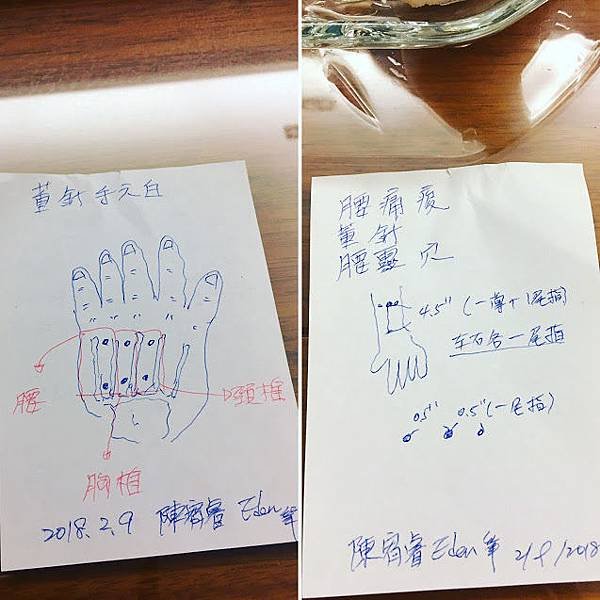 董針手六白
腰
頸椎
胸椎
2018.2.9 陳宥睿 Eden 筆
腰痛痠
董針
腰靈穴
4.5" (一 + 1尾指)
左右各一尾指
0.5" 0.5" (一尾指)
陳宥睿 Eden 筆 2/9/2018